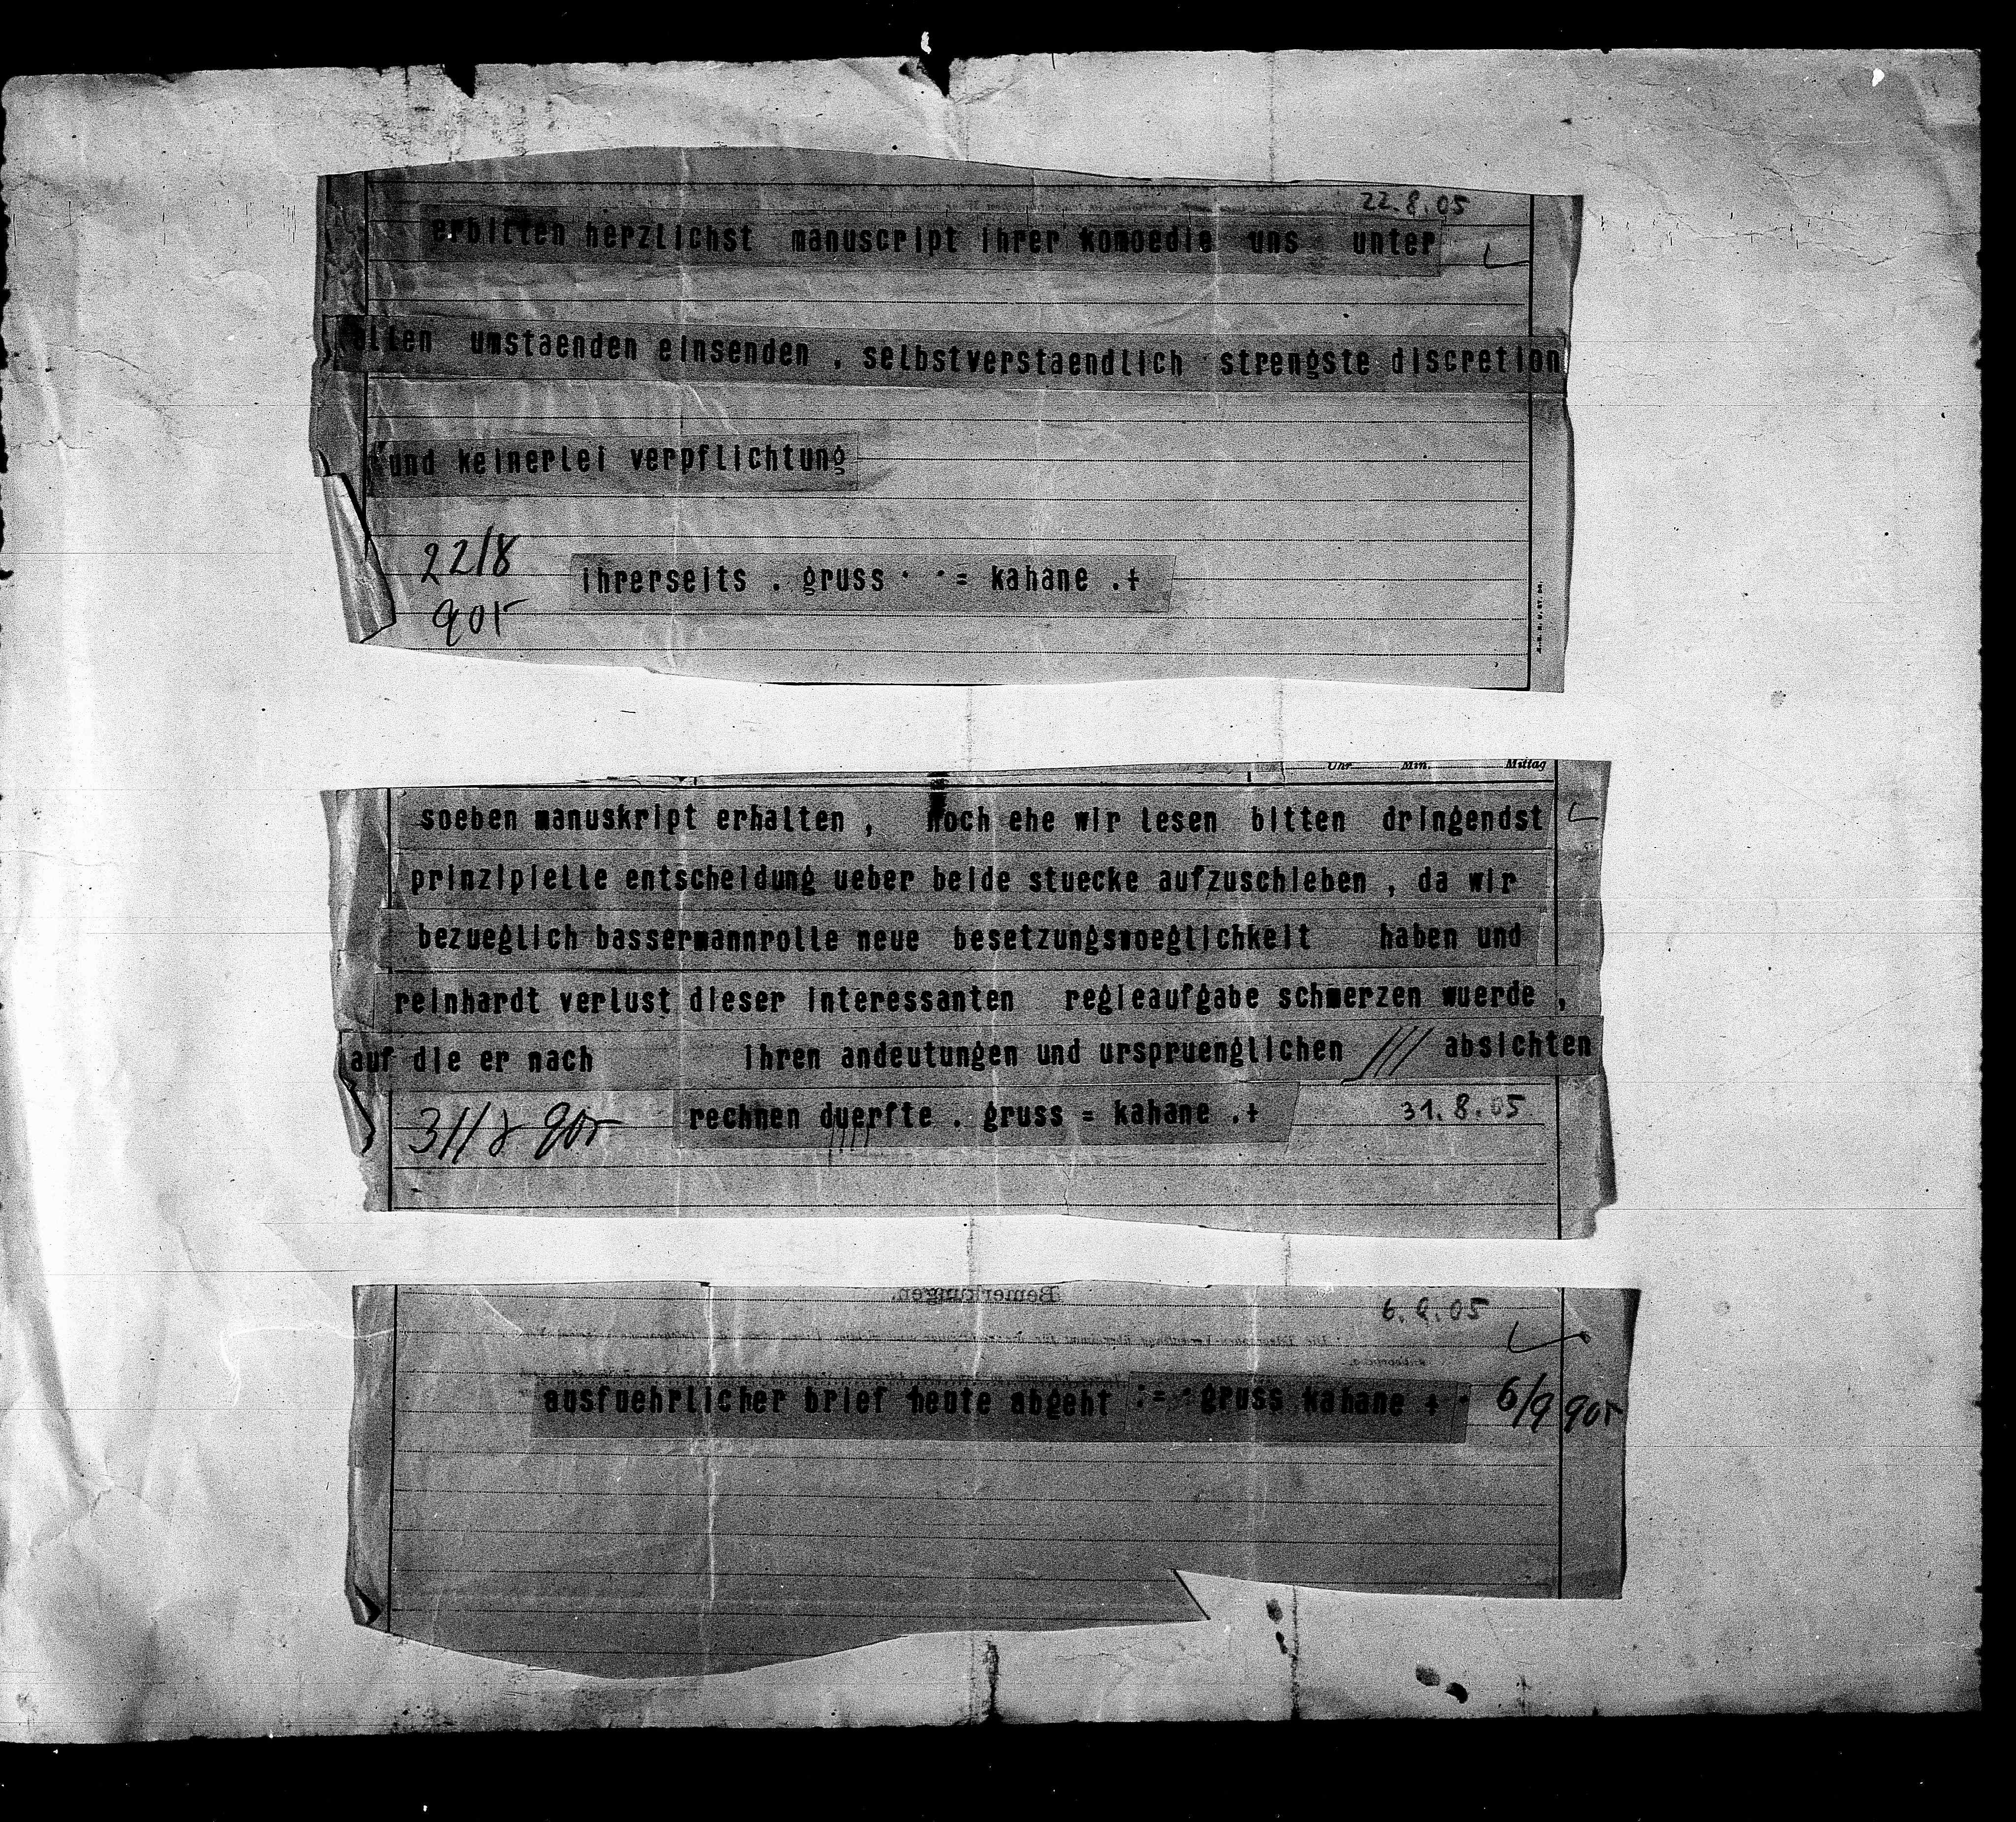 22.8.05
erbitten herzlichst manuscript ihrer komoedie uns unter
allen umstaenden einsenden , selbstverstaendlich strengste discretion
und keinerlei verpflichtung
22/8
905
ihrerseits . gruss · · = kahane .+
Uhr Min. Mittag
soeben manuskript erhalten , noch ehe wir lesen bitten dringendst
prinzipielle entscheidung ueber beide stuecke aufzuschieben , da wir
bezueglich bassermannrolle neue besetzungsmoeglichkeit haben und
reinhardt verlust dieser interessanten regieaufgabe schmerzen wuerde ,
auf die er nach ihren andeutungen und urspruenglichen /// absichten
31/8 905 rechnen duerfte . gruss = kahane .+ 31.8.05
Bemerkungen.
6.9.05
ausfuehrlicher brief heute abgeht := · gruss kahane + · 6/9 905